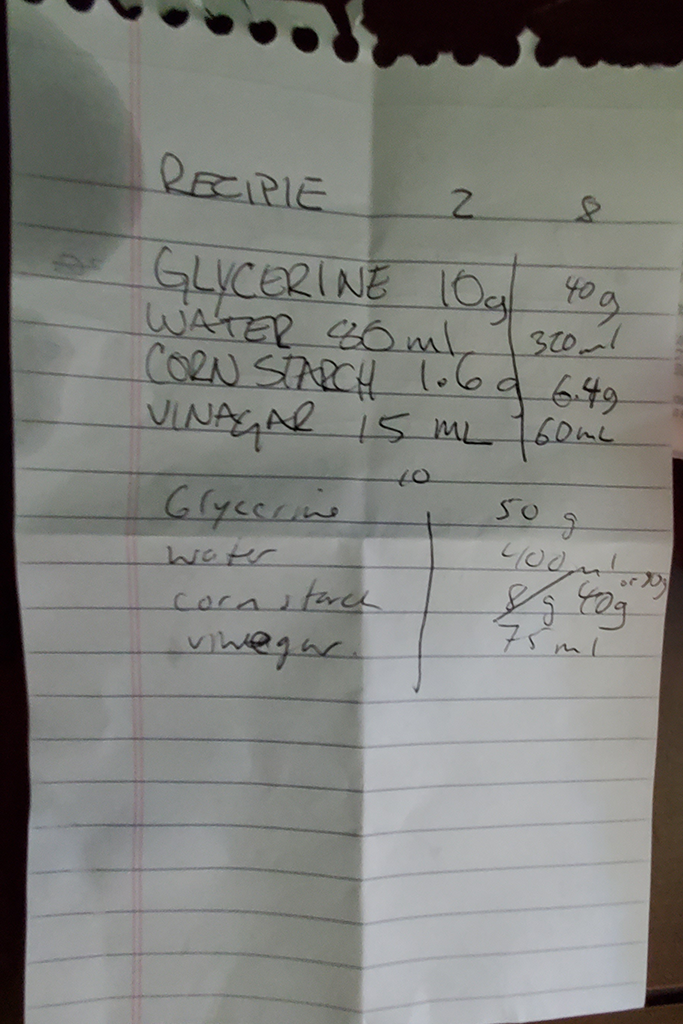 RECIPIE 2 8
GLYCERINE 10g 40g
WATER 80ml 320ml
CORN STARCH 1.6g 6.4g
VINAGAR 15 ML 60mL
10
Glycerine 50 g
water 400ml
corn starch 8 g 40g
vinegar. 75 ml